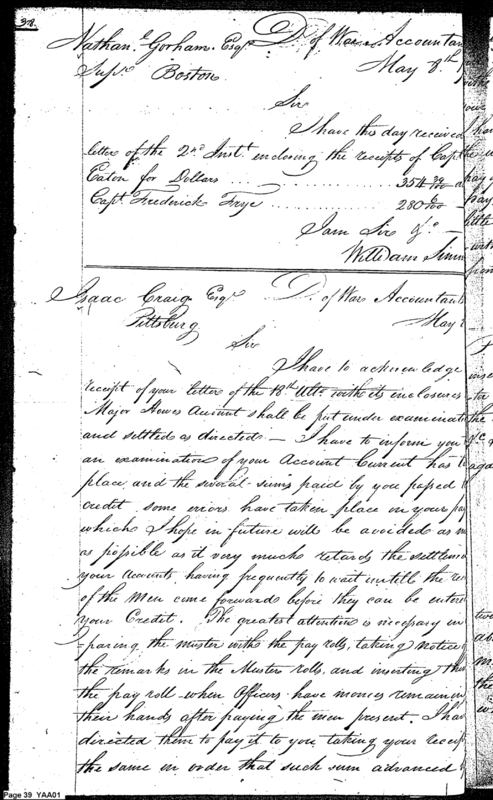 38.
Nathanl. Gorham. Esqr. D. of War Accountan
Supr. Boston May 8th
Sir
I have this day received
letter of the 2nd Instt. enclosing the receipts of Capt
Eaton for Dollars 354
Capt. Frederick Frye 280
I am Sir &c
William Simm
Isaac Craig Esqr. D. of War Accountant
Pittsburg May
Sir
I have to acknowledge
receipt of your letter of the 18th Ulto. with its enclosures
Major Howes Account shall be put under examinat
and settled as directed — I have to inform you
an examination of your Account Current has t
place, and the several sums paid by you passed t
credit some errors have taken place on your pay
which I hope in future will be avoided as m
as possible as it very much retards the settlem
your Accounts, having frequently to wait untill the re
of the Men come forwards before they can be entere
your Credit. The greatest attention is necessary in
paring the muster with the pay rolls, taking notice
the remarks in the Muster rolls, and inserting the
the pay roll when Officers have monies remain
their hands after paying the men present. I ha
directed them to pay it to you, taking your receip
the same in order that such sum advanced
Page 39 YAA01